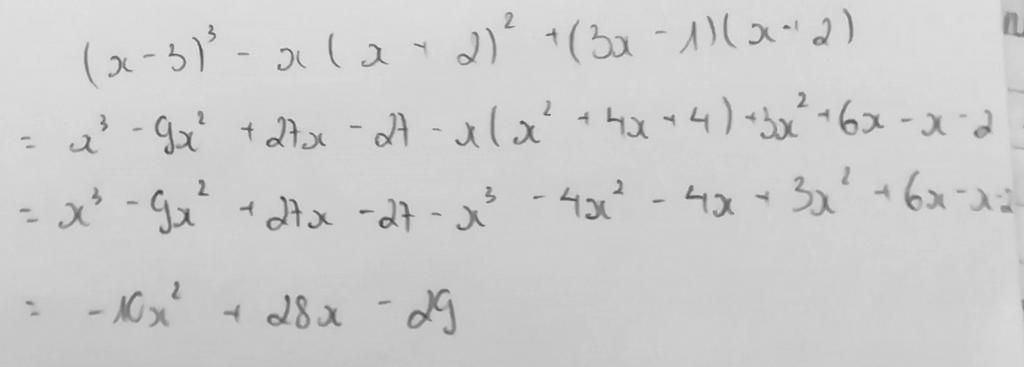 (x - 3)³ - x(x + 2)² + (3x - 1)(x + 2)
= x³ - 9x² + 27x - 27 - x(x² + 4x + 4) + 3x² + 6x - x - 2
= x³ - 9x² + 27x - 27 - x³ - 4x² - 4x + 3x² + 6x - x - 2
= -10x² + 28x - 29